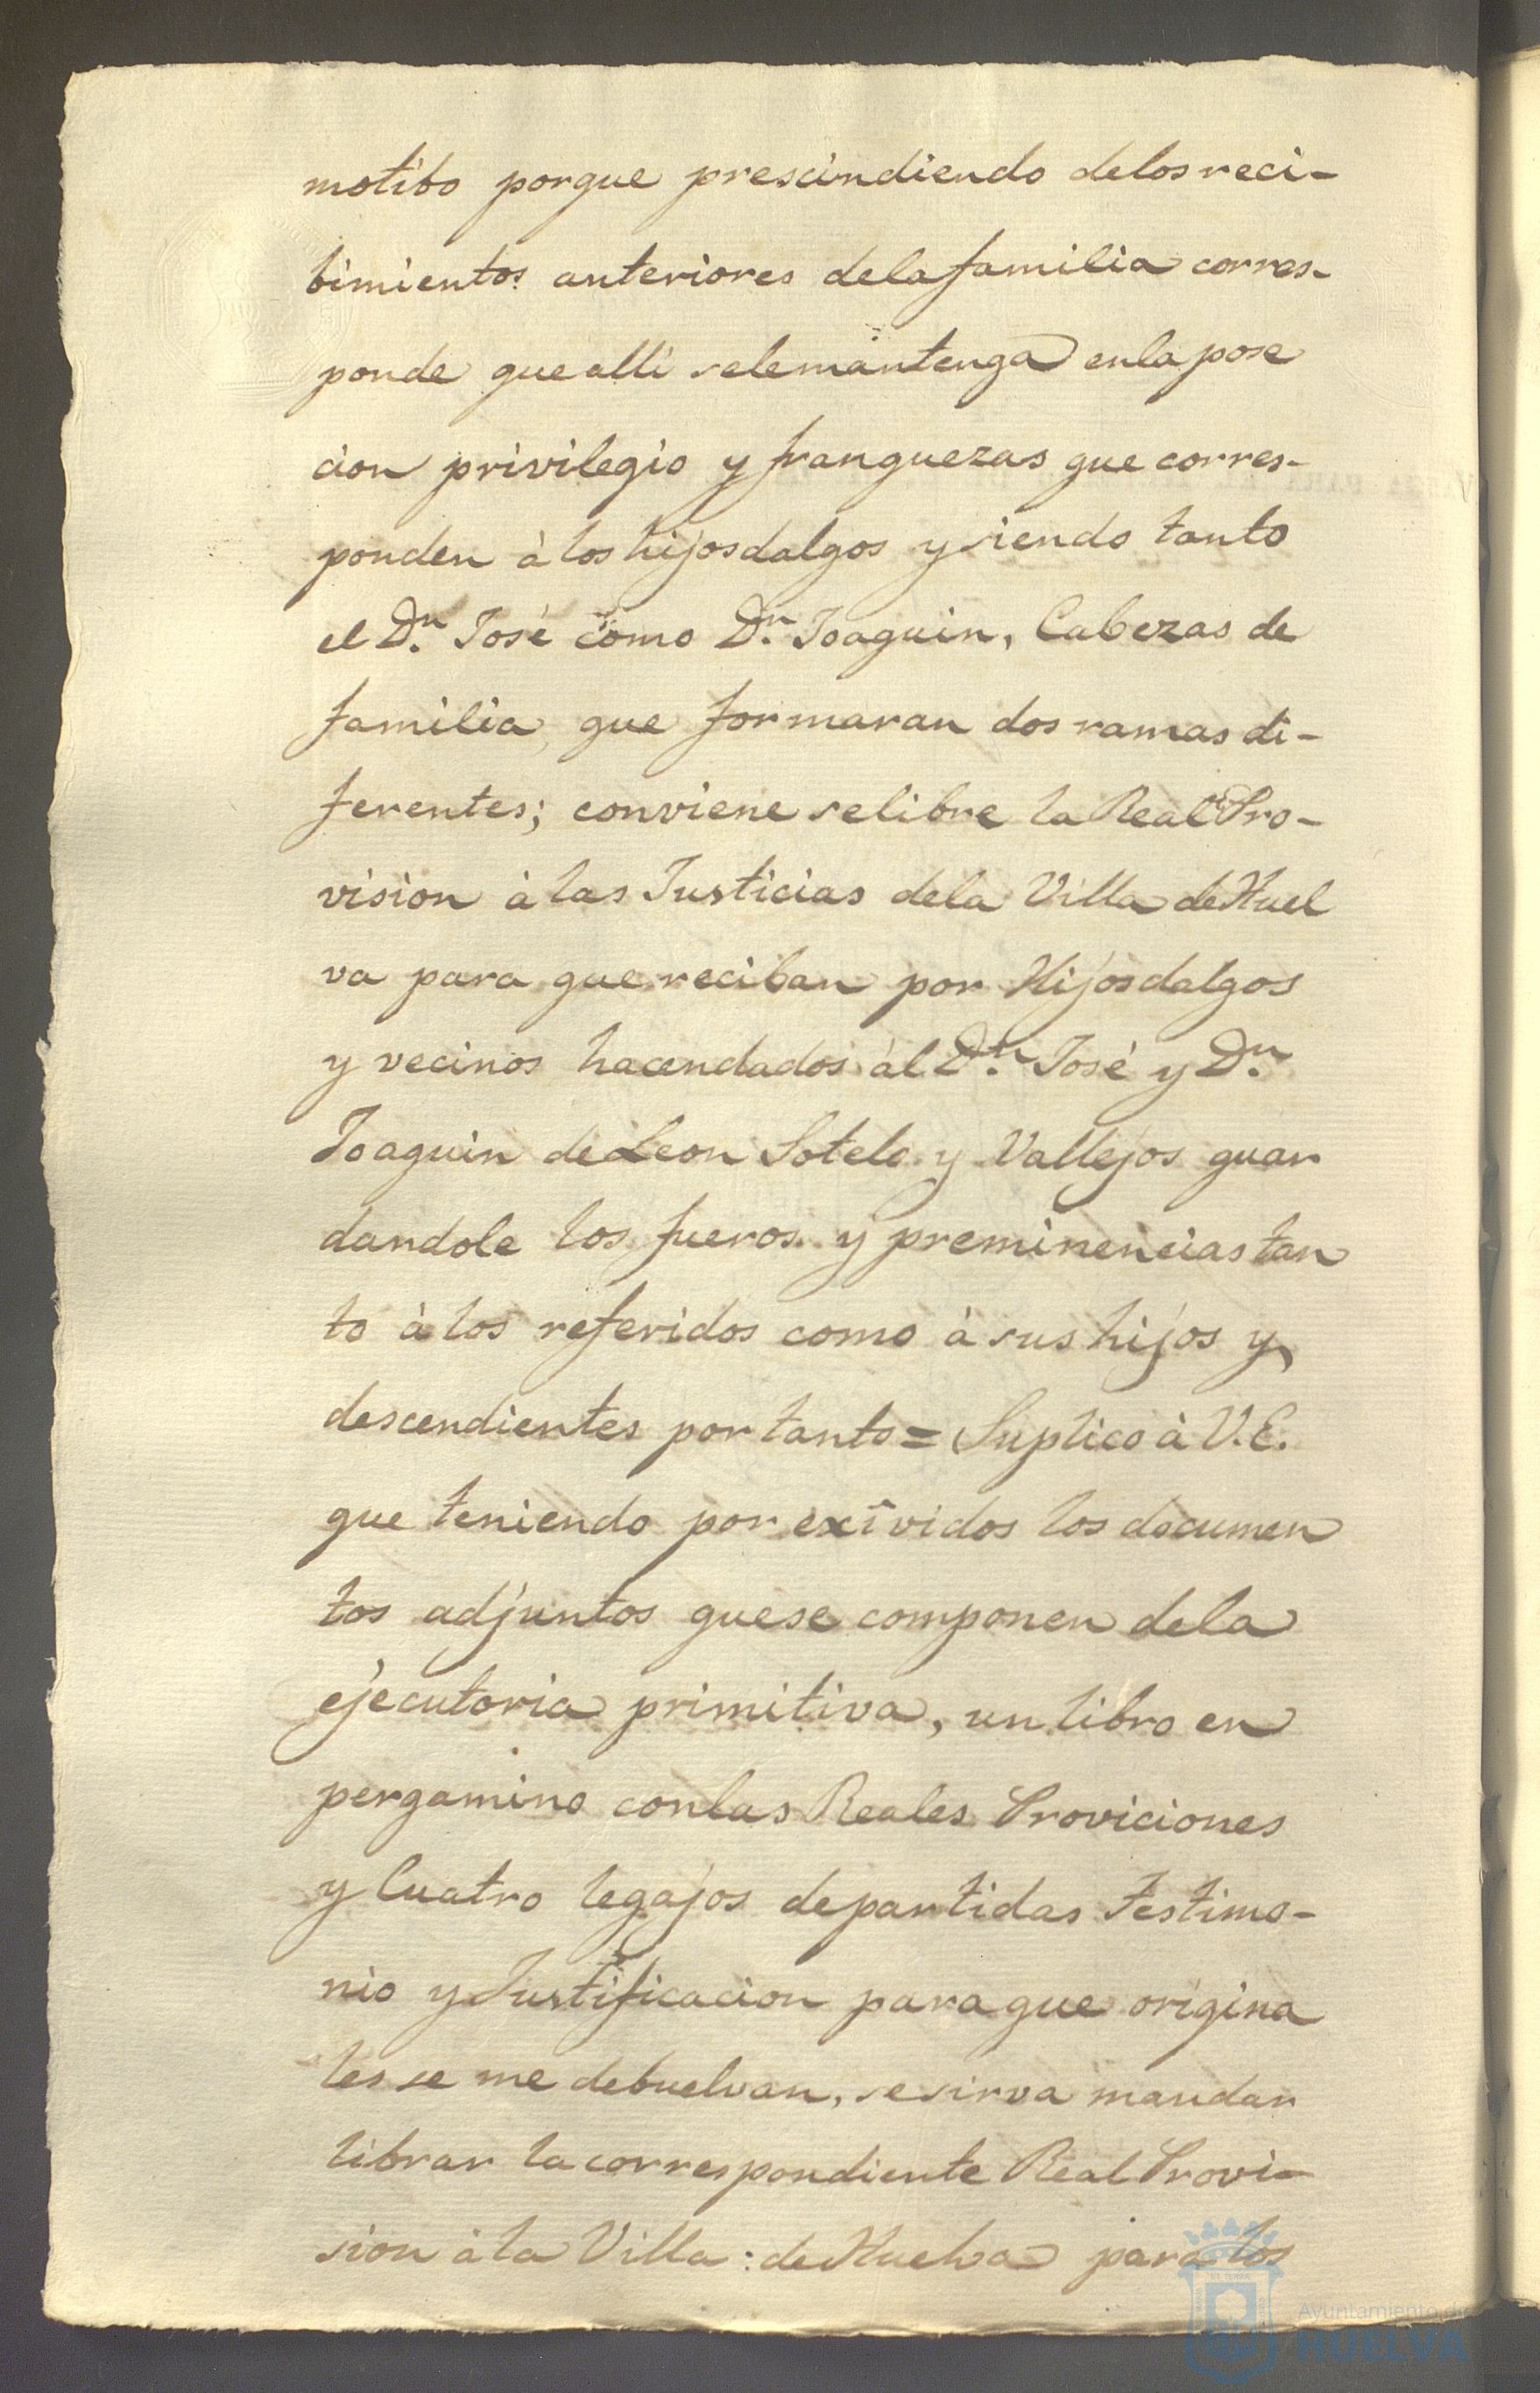 motibo porque prescindiendo delos reci-
bimientos anteriores dela familia corres-
ponde que alli sele mantenga enla pose
cion privilegio y franquezas que corres-
ponden à los hijosdalgos y siendo tanto
el Dn. José como Dn. Joaquin, Cabezas de
familia, que formaran dos ramas di-
ferentes; conviene se libre la Real Pro-
vision à las Justicias dela Villa de Huel
va para que reciban por Hijosdalgos
y vecinos hacendados àl Dn. José y Dn.
Joaquin de Leon Sotelo y Vallejos guar
dandole los fueros y preminencias tan
to à los referidos como à sus hijos y
descendientes por tanto = Suplico à V.E.
que teniendo por exîvidos los documen
tos adjuntos que se componen dela
ejecutoria primitiva, un libro en
pergamino con las Reales Proviciones
y Cuatro legajos de partidas Testimo-
nio y Justificacion para que origina
les se me debuelvan, se sirva mandar
librar la correspondiente Real Provi-
sion à la Villa: de Huelva para los
Ayuntamiento de
HUELVA